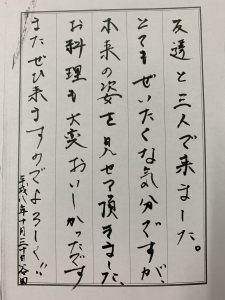 友達と三人で来ました。
とてもぜいたくな気分ですが、
本来の姿を見せて頂きました、
お料理も大変おいしかったです
またぜひ来ますのでよろしく!!
平成八年十月三十日谷田